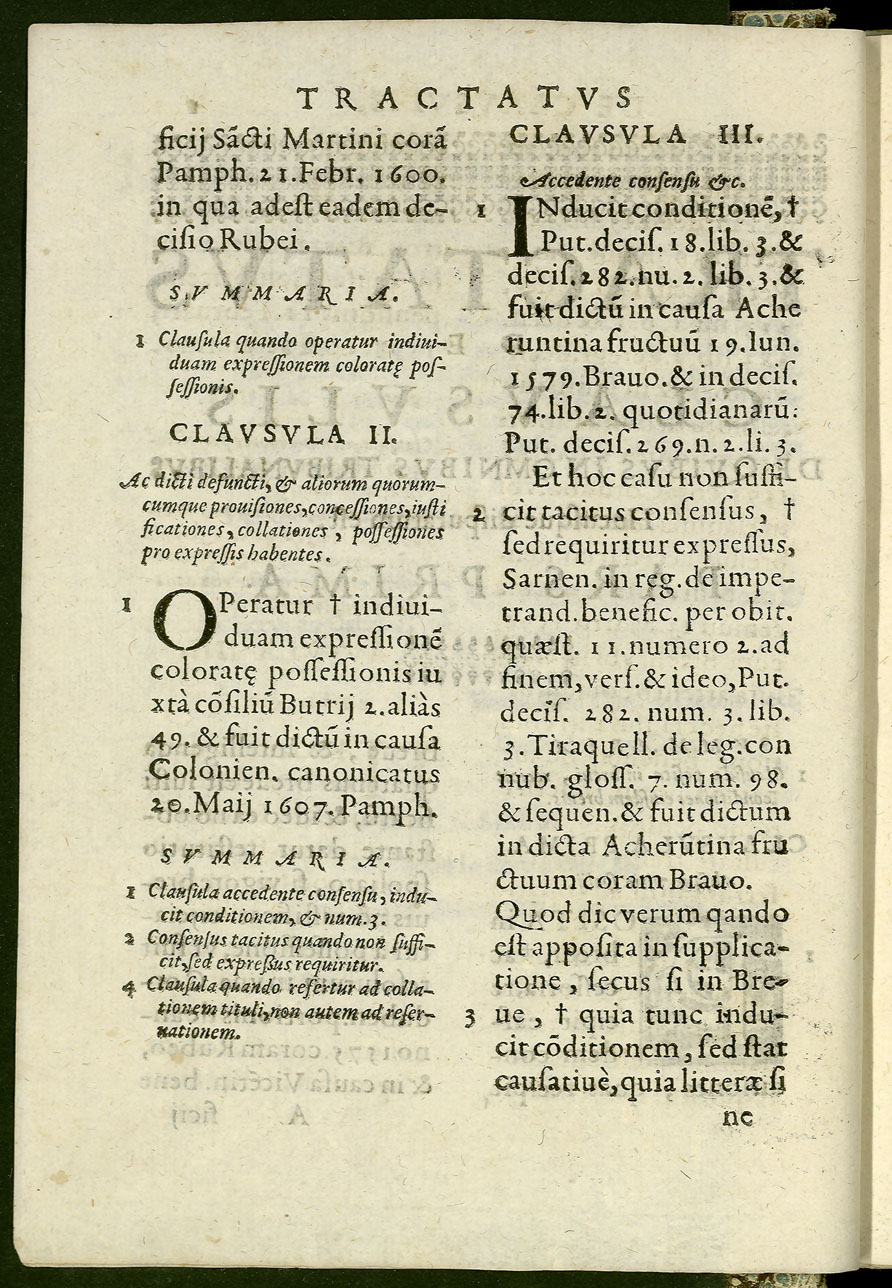 TRACTATVS
ficij Sãcti Martini corã
Pamph. 21. Febr. 1600.
in qua adest eadem de-
cisio Rubei.
SVMMARIA.
1 Clausula quando operatur indiui-
duam expressionem coloratę pos-
sessionis.
CLAVSVLA II.
Ac dicti defuncti, & aliorum quorum-
cumque prouisiones, concessiones, iusti
ficationes, collationes, possessiones
pro expressis habentes.
1 OPeratur † indiui-
duam expressionẽ
coloratę possessionis iu
xtà cõsiliũ Butrij 2. aliàs
49. & fuit dictũ in causa
Colonien. canonicatus
20. Maij 1607. Pamph.
SVMMARIA.
1 Clausula accedente consensu, indu-
cit conditionem, & num. 3.
2 Consensus tacitus quando non suffi-
cit, sed expressus requiritur.
4 Clausula quando refertur ad colla-
tionem tituli, non autem ad reser-
uationem.
CLAVSVLA III.
Accedente consensu &c.
1 INducit conditionẽ, †
Put. decis. 18. lib. 3. &
decis. 282. nu. 2. lib. 3. &
fuit dictũ in causa Ache
runtina fructuũ 19. Iun.
1579. Brauo. & in decis.
74. lib. 2. quotidianarũ:
Put. decis. 269. n. 2. li. 3.
Et hoc casu non suffi-
2 cit tacitus consensus, †
sed requiritur expressus,
Sarnen. in reg. de impe-
trand. benefic. per obit.
quæst. 11. numero 2. ad
finem, vers. & ideo, Put.
decis. 282. num. 3. lib.
3. Tiraquell. de leg. con
nub. gloss. 7. num. 98.
& sequen. & fuit dictum
in dicta Acherũtina fru
ctuum coram Brauo.
Quod dic verum qando
est apposita in supplica-
tione, secus si in Bre-
3 ue, † quia tunc indu-
cit cõditionem, sed stat
causatiuè, quia litteræ si
ne